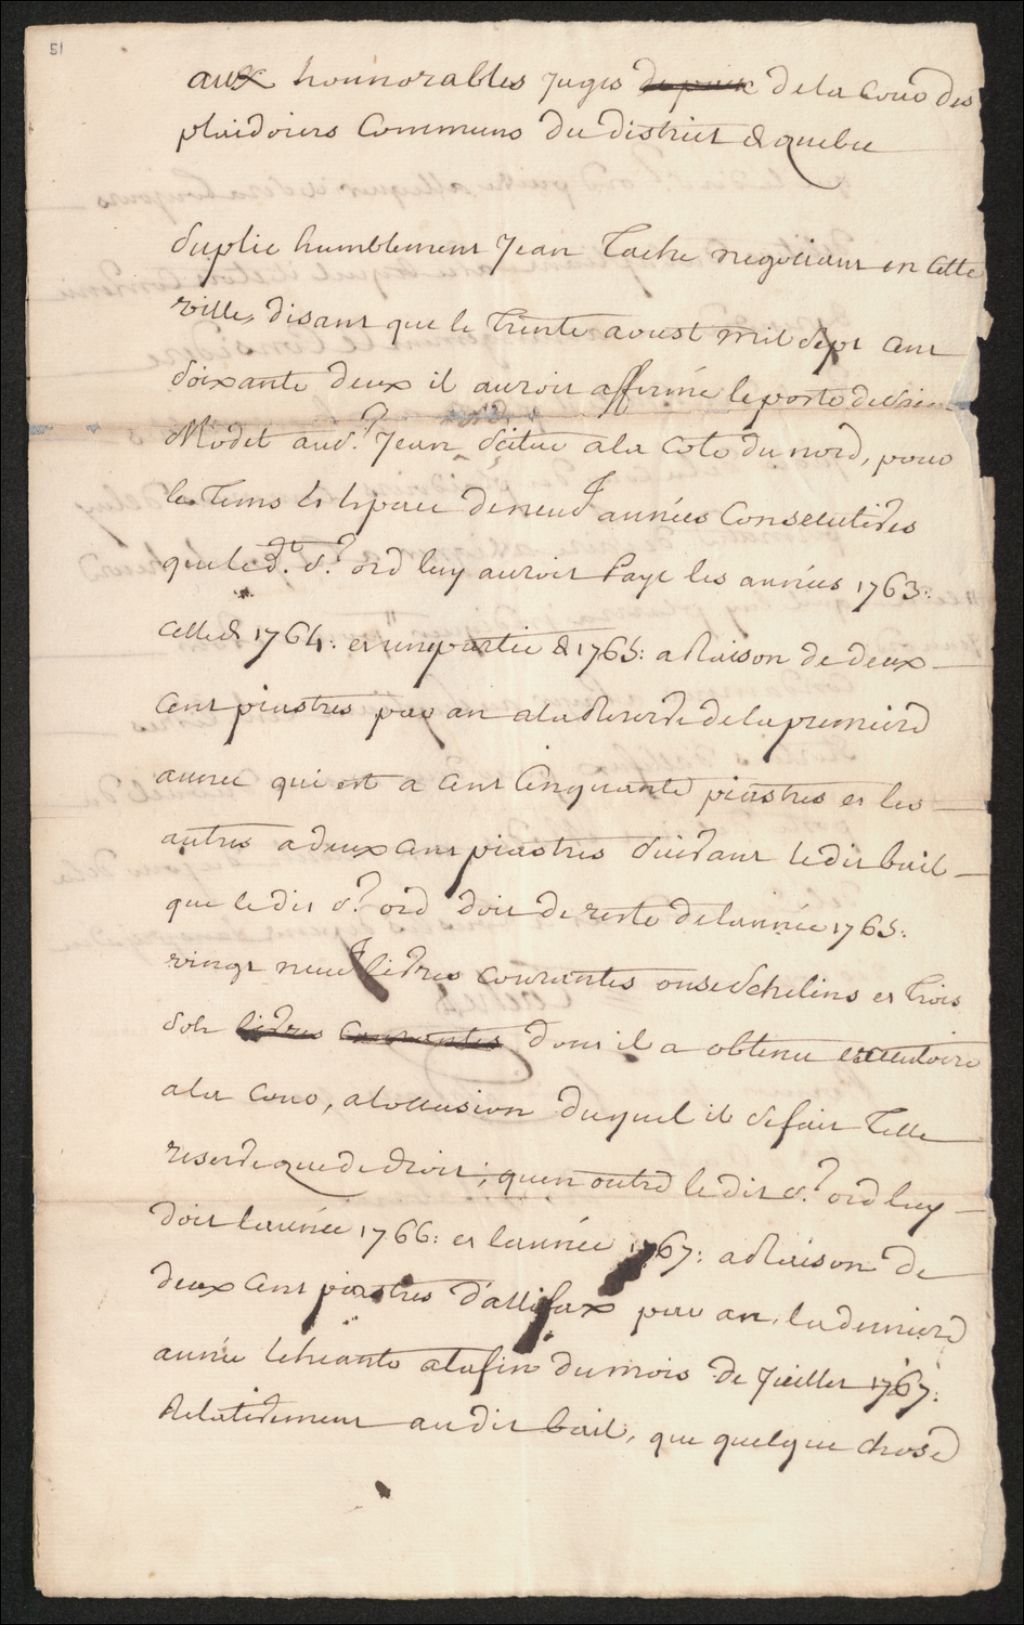 51
aux honnorables juges de paix de la Cour des
plaidoiers Communs du district de quebec
Suplie humblement Jean Taché negotiant en cette
ville, disant que le trente aoust mil sept cent
soixante deux il auroit affermé le poste de St
Modet au Sr. Jean situé a la Cote du nord, pour
le tems et espace de neuf années Consecutives
que le dt. Sr. ord luy auroit Payé les années 1763:
celle de 1764: et une partie de 1765: a Raison de deux
cent piastres par an a la Reserve de la premiere
année qui est a cent Cinquante piastres et les
autres a deux cent piastres suivant le dit bail
que le dit Sr. ord doit de reste de l'année 1765:
vingt neuf livres courantes onse schelins et trois
sols livres courantes dont il a obtenu executoire
a la Cour, a l'occasion duquel il se fait telle
reserve que de droit; qu'en outre le dit Sr. ord luy
doit l'année 1766: et l'année 1767: a Raison de
deux cent piastres d'allifax par an, la derniere
année Echeante a la fin du mois de Juillet 1767:
Relativement au dit bail, que quelque chose